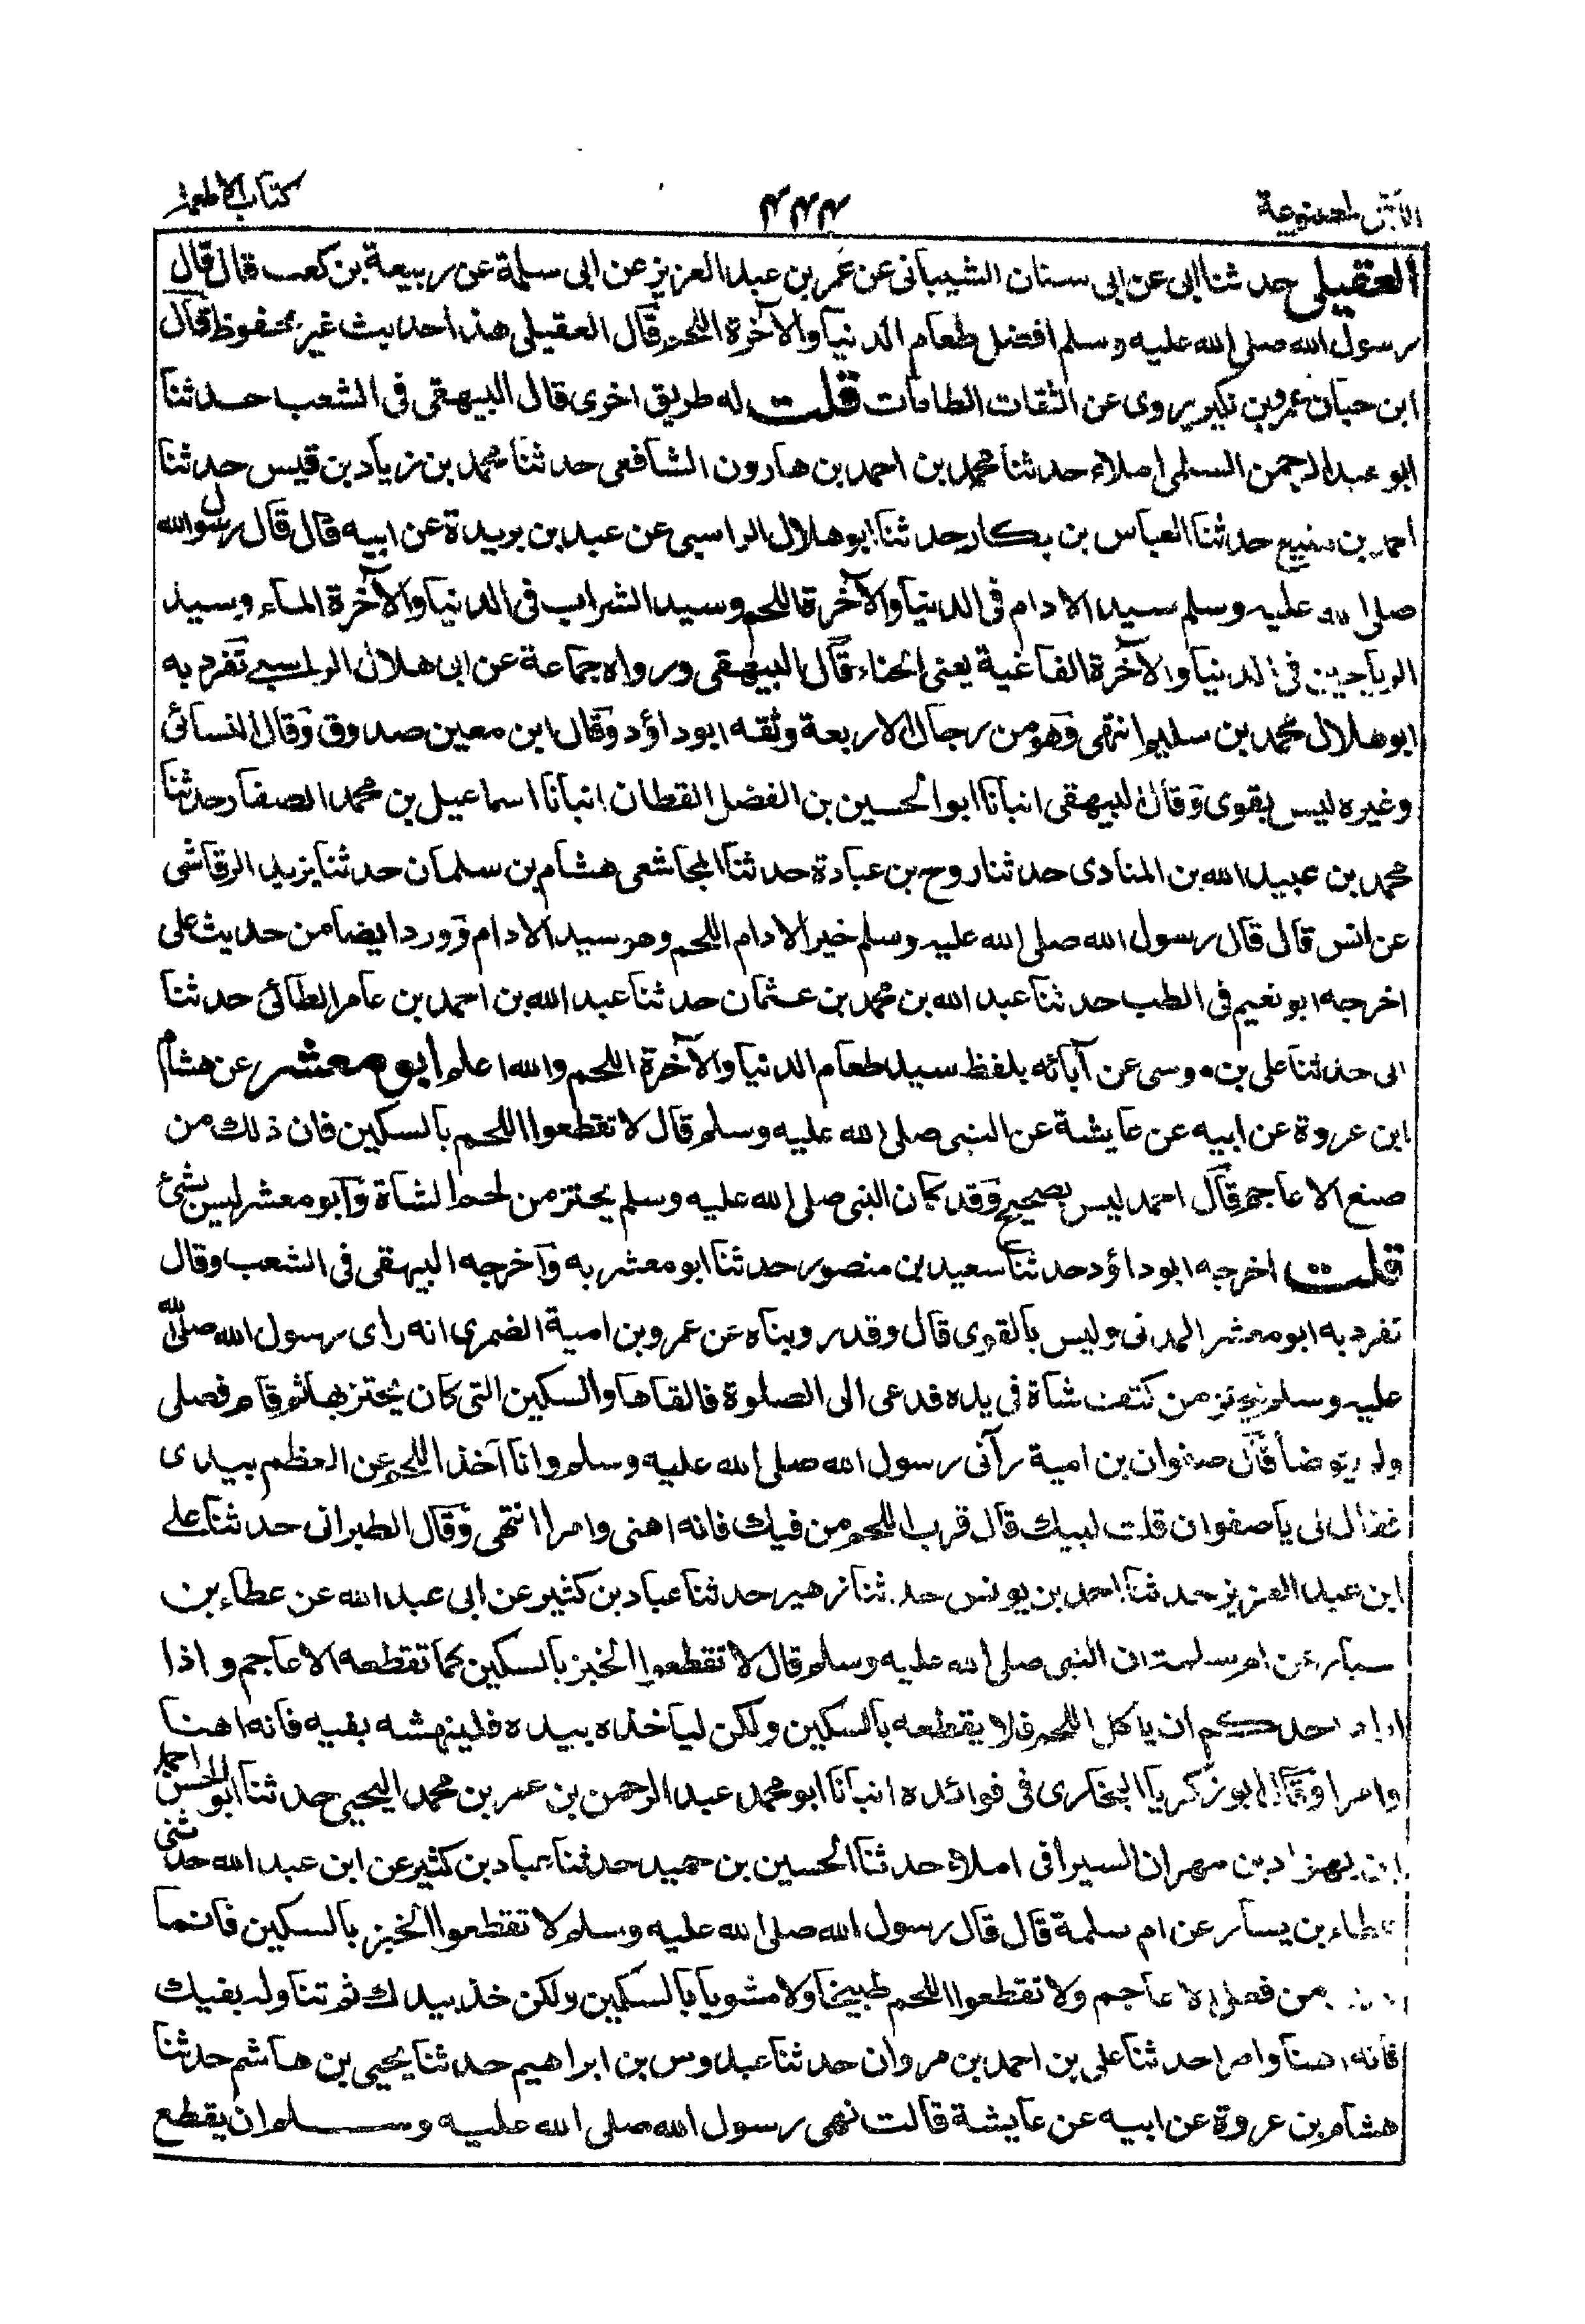 كتاب الاطعمة
٤٤٤
العقيلى حدثنا ابى عن ابى سنان الشيبانى عن عمر بن عبد العزيز عن ابى سلمة عن ربيعة بن كعب قال قال
رسول الله صلى الله عليه وسلم افضل طعام الدنيا والآخرة اللحم قال العقيلى هذا حديث غير محفوظ قال
ابن حبان عمرو بن بكير يروى عن الثقات الطامات قلت له طريق اخرى قال البيهقى فى الشعب حدثنا
ابو عبد الرحمن السلمى املاء حدثنا محمد بن احمد بن هارون الشافعى حدثنا محمد بن زياد بن قيس حدثنا
احمد بن منيع حدثنا العباس بن بكار حدثنا ابو هلال الراسبى عن عبد بن بريدة عن ابيه قال قال رسول الله
صلى الله عليه وسلم سيد الادام فى الدنيا والآخرة اللحم وسيد الشراب فى الدنيا والآخرة الماء وسيد
الرياحين فى الدنيا والآخرة الفاغية يعنى الحناء قال البيهقى ورواه جماعة عن ابى هلال الراسبى تفرد به
ابو هلال محمد بن سليم انتهى وهو من رجال الاربعة وثقه ابو داؤد وقال ابن معين صدوق وقال النسائى
وغيره ليس بقوى وقال البيهقى انبانا ابو الحسين بن الفضل القطان انبانا اسماعيل بن محمد الصفار حدثنا
محمد بن عبيد الله بن المنادى حدثنا روح بن عبادة حدثنا المجاشعى هشام بن سلمان حدثنا يزيد الرقاشى
عن انس قال قال رسول الله صلى الله عليه وسلم خير الادام اللحم وهو سيد الادام وورد ايضا من حديث على
اخرجه ابو نعيم فى الطب حدثنا عبد الله بن محمد بن عثمان حدثنا عبد الله بن احمد بن عامر الطائى حدثنا
ابى حدثنا على بن موسى عن آبائه بلفظ سيد طعام الدنيا والآخرة اللحم والله اعلم ابو معشر عن هشام
ابن عروة عن ابيه عن عايشة عن النبى صلى الله عليه وسلم قال لا تقطعوا اللحم بالسكين فان ذلك من
صنع الاعاجم قال احمد ليس بصحيح وقد كان النبى صلى الله عليه وسلم يحتز من لحم الشاة وابو معشر ليس بشئ
قلت اخرجه ابو داؤد حدثنا سعيد بن منصور حدثنا ابو معشر به واخرجه البيهقى فى الشعب وقال
تفرد به ابو معشر المدنى وليس بالقوى قال وقد روينا عن عمرو بن امية الضمرى انه راى رسول الله صلى الله
عليه وسلم يحتز من كتف شاة فى يده فدعى الى الصلوة فالقاها والسكين التى كان يحتز بها ثم قام فصلى
ولم يتوضأ قال صفوان بن امية رآنى رسول الله صلى الله عليه وسلم وانا آخذ اللحم عن العظم بيدى
فقال لى يا صفوان قلت لبيك قال قرب اللحم من فيك فانه اهنى وامرا انتهى وقال الطبرانى حدثنا على
ابن عبد العزيز حدثنا احمد بن يونس حدثنا زهير حدثنا عباد بن كثير عن ابى عبد الله عن عطاء بن
يسار عن ام سلمة ان النبى صلى الله عليه وسلم قال لا تقطعوا الخبز بالسكين كما تقطعه الاعاجم واذا
اراد احدكم ان ياكل اللحم فلا يقطعه بالسكين ولكن لياخذه بيده فلينهشه بفيه فانه اهنا
وامرا وقال ابو زكريا البخارى فى فوائده انبانا ابو محمد عبد الرحمن بن عمر بن محمد اليحيى حدثنا ابو الحسن احمد
ابن بهزاد بن مهران السيرافى املاء حدثنا الحسين بن حميد حدثنا عباد بن كثير عن ابن عبد الله حدثنى
عطاء بن يسار عن ام سلمة قال قال رسول الله صلى الله عليه وسلم لا تقطعوا الخبز بالسكين فانما
من فعل الاعاجم ولا تقطعوا اللحم طبيخا ولا مشويا بالسكين ولكن خذ بيدك ثم تناوله بفيك
فانه اهنأ وامرا حدثنا على بن احمد بن مروان حدثنا عبدوس بن ابراهيم حدثنا يحيى بن هاشم حدثنا
هشام بن عروة عن ابيه عن عايشة قالت نهى رسول الله صلى الله عليه وسلم ان يقطع